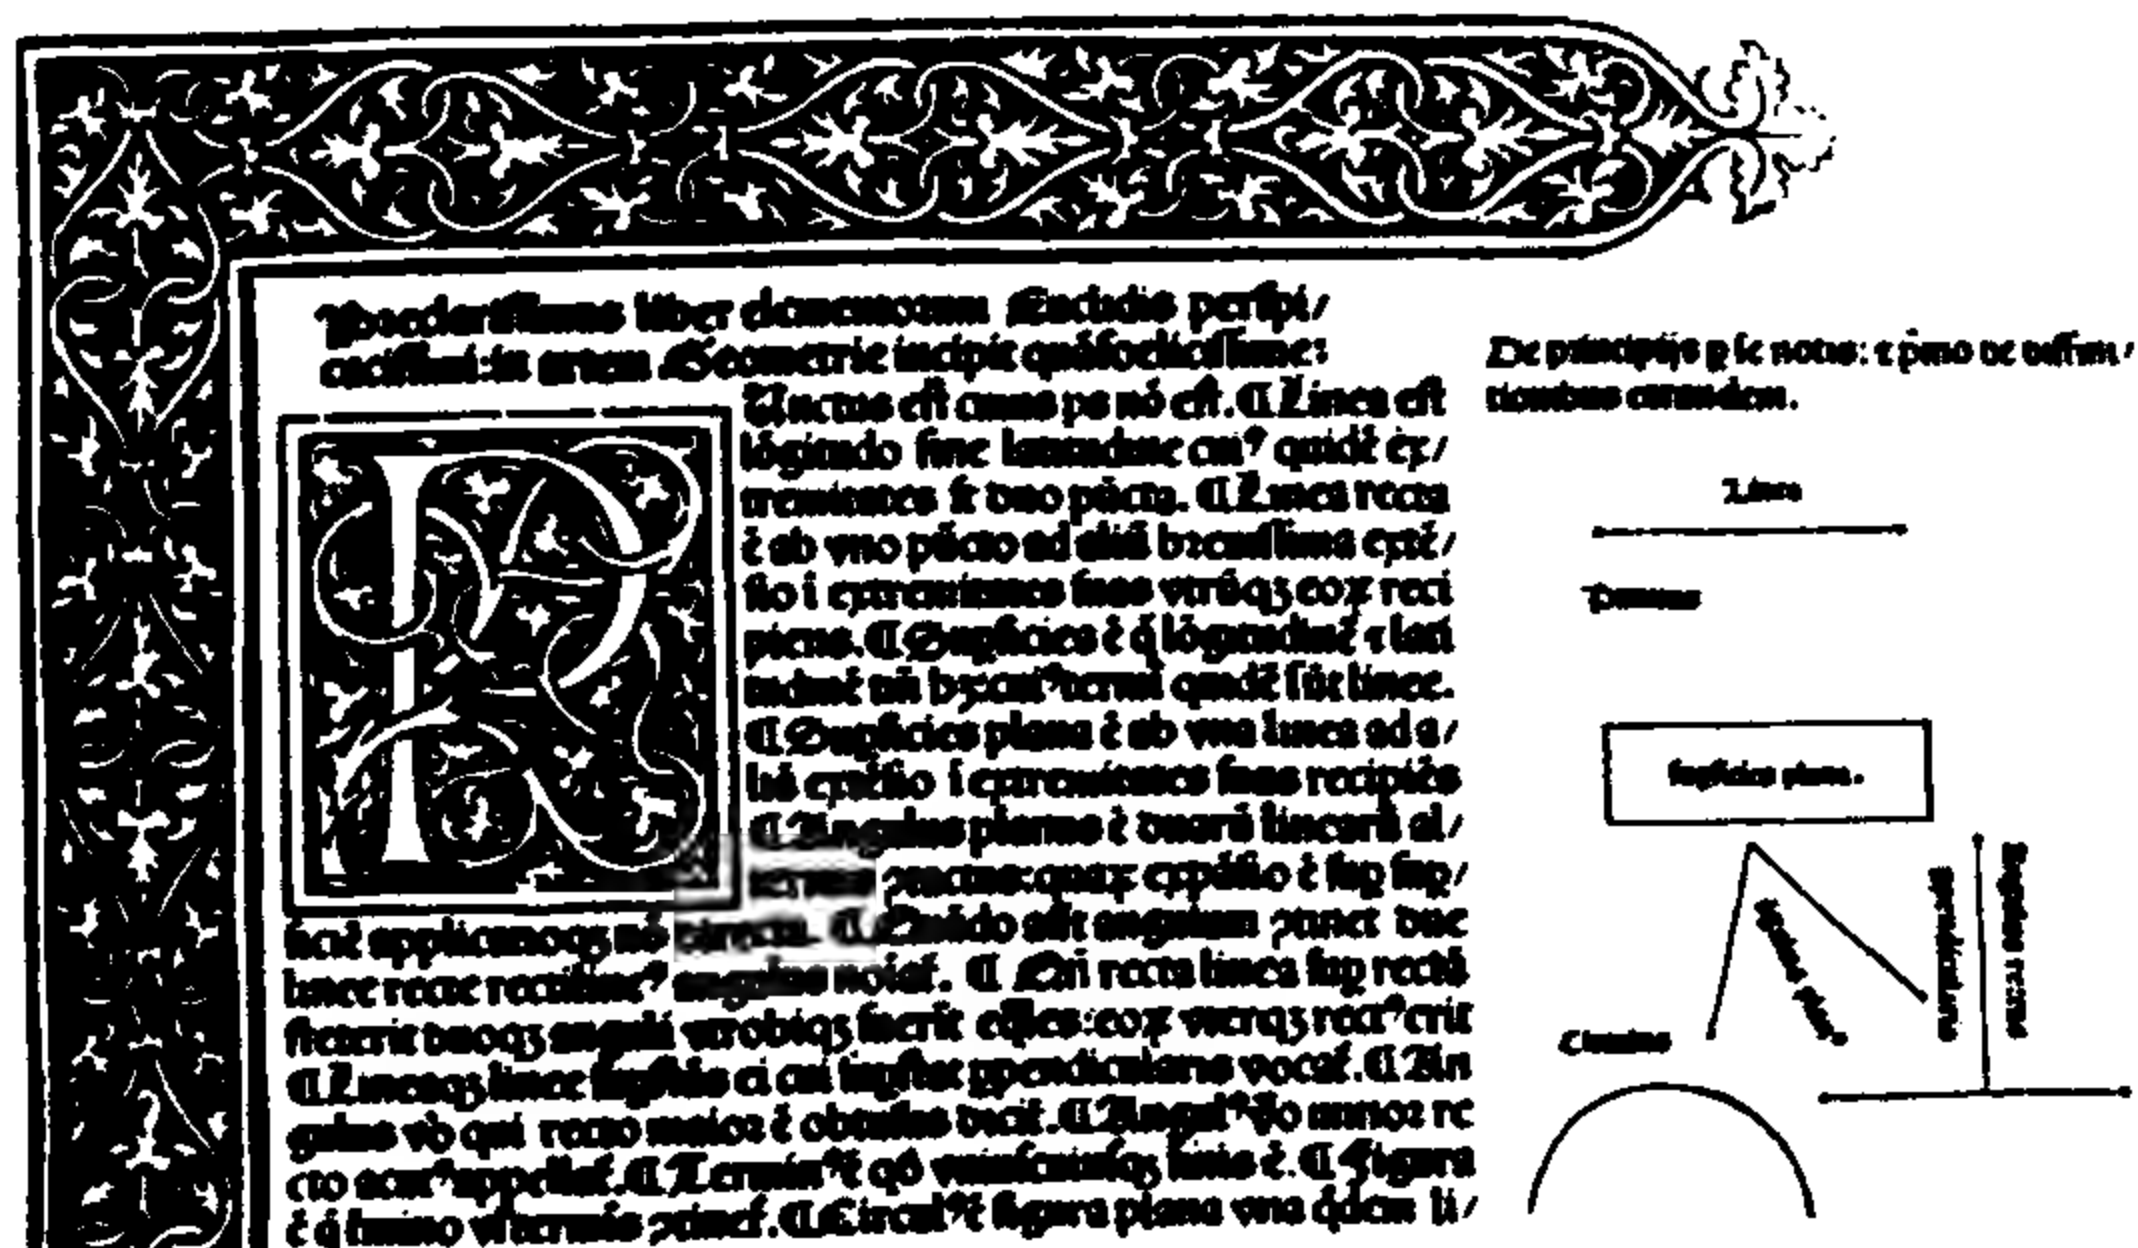 Preclarissimus liber elementorum Euclidis perspi/
cacissimi: in artem Geometrie incipit quãfoelicissime:
Unctus est cuius ps nõ est. ¶ Linea est
lõgitudo sine latitudine cui⁹ quidẽ ex/
tremitates sũt duo pũcta. ¶ Linea recta
ẽ ab vno pũcto ad aliũ breuissima extẽ/
sio ĩ extremitates suas vtrũqꝫ eoꝝ reci
piens. ¶ Supficies ẽ q̃ lõgitudinẽ ⁊ lati
tudinẽ tm̃ hꝫ: cui⁹ termi quidẽ sũt linee.
¶ Supficies plana ẽ ab vna linea ad a/
liã extẽsio ĩ extremitates suas recipiẽs
¶ Angulus planus ẽ duarũ linearũ al/
ternus ꝯtactus: quaꝝ expãsio ẽ sup sup/
ficiẽ applicatioqꝫ nõ directa. ¶ Quãdo aũt angulum ꝯtinet due
linee recte rectiline⁹ angulus noiat̃. ¶ Qñ recta linea sup rectã
steterit duoqꝫ anguli vtrobiqꝫ fuerit eq̃les: eoꝝ vterqꝫ rect⁹ erit
¶ Lineaqꝫ linee supstãs ei cui supstat ppendicularis vocat̃. ¶ An
gulus vo qui recto maior ẽ obtusus dicit̃. ¶ Angul⁹ vo minor re
cto acut⁹ appellat̃. ¶ Termin⁹ ẽ qd vniuscuiusqꝫ finis ẽ. ¶ Figura
ẽ q̃ tmino vl terminis ꝯtinet̃. ¶ Circul⁹ ẽ figura plana vna q̃dem li/
De principijs p se notis: ⁊ pmo de diffini/
tionibus earundem.
Linea
Punctus
supficies plana.
Circulus